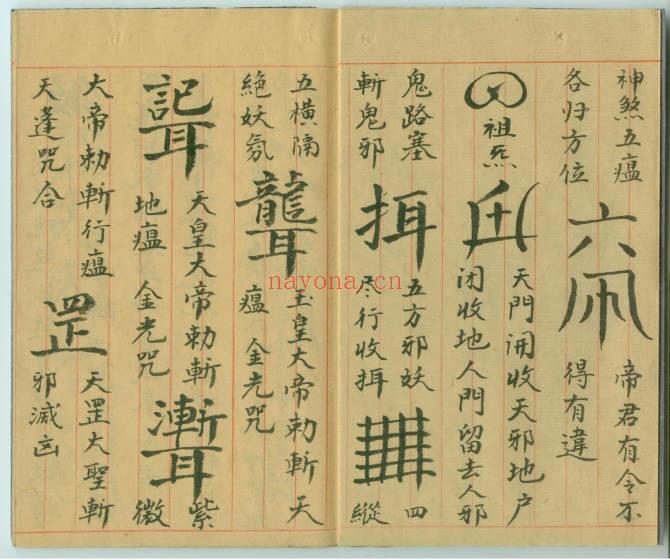 神煞五瘟
各归方位
六
帝君有令不
得有違
祖炁
天門開收天邪地户
闭收地人門留去人邪
鬼路塞
斬鬼邪
挕
五方邪妖
尽行收挕
四
縱
五橫隔
絕妖氛
聾
玉皇大帝勅斬天
瘟 金光咒
天皇大帝勅斬
地瘟 金光咒
紫
微
大帝勅斬行瘟
天蓬咒合
罡
天罡大聖斬
邪滅凶
nayona.cn